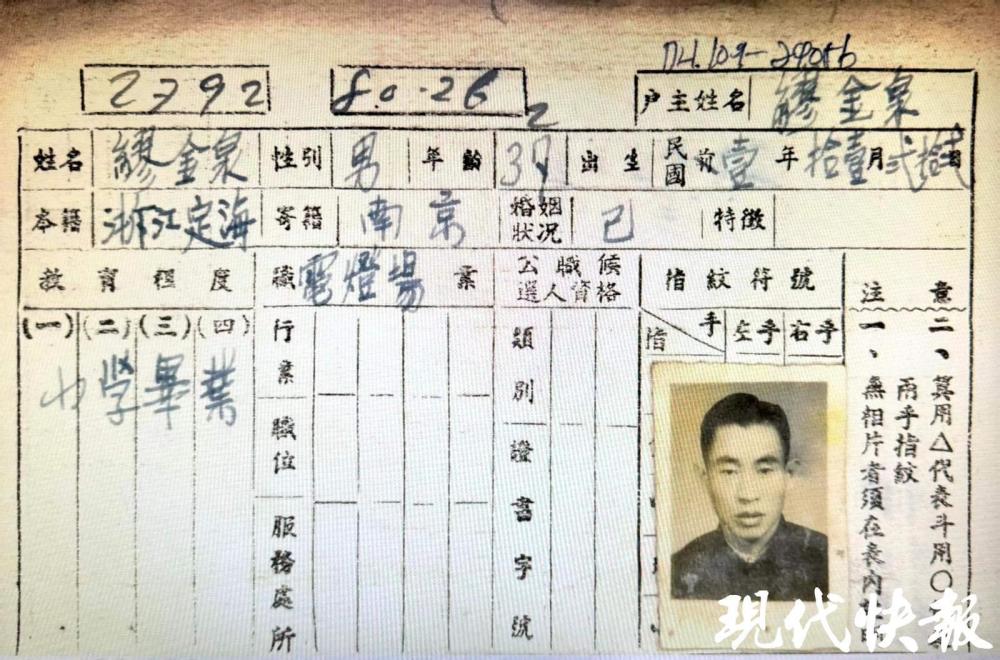 2792
80-26
户主姓名 繆金泉
姓名 繆金泉 性別 男 年齡 37 出生 民國前壹年拾壹月
本籍 浙江定海 寄籍 南京 婚姻狀況 已 特徵
教育程度 職業 電燈場 公職候選人資格 指紋符號
(一)(二)(三)(四) 行業 職位 服務處所 類別 證書字號 指 手 左手 右手
中學畢業
注意
一、無相片者須在表內
兩手指紋
二、箕用△代表斗用○
现代快報